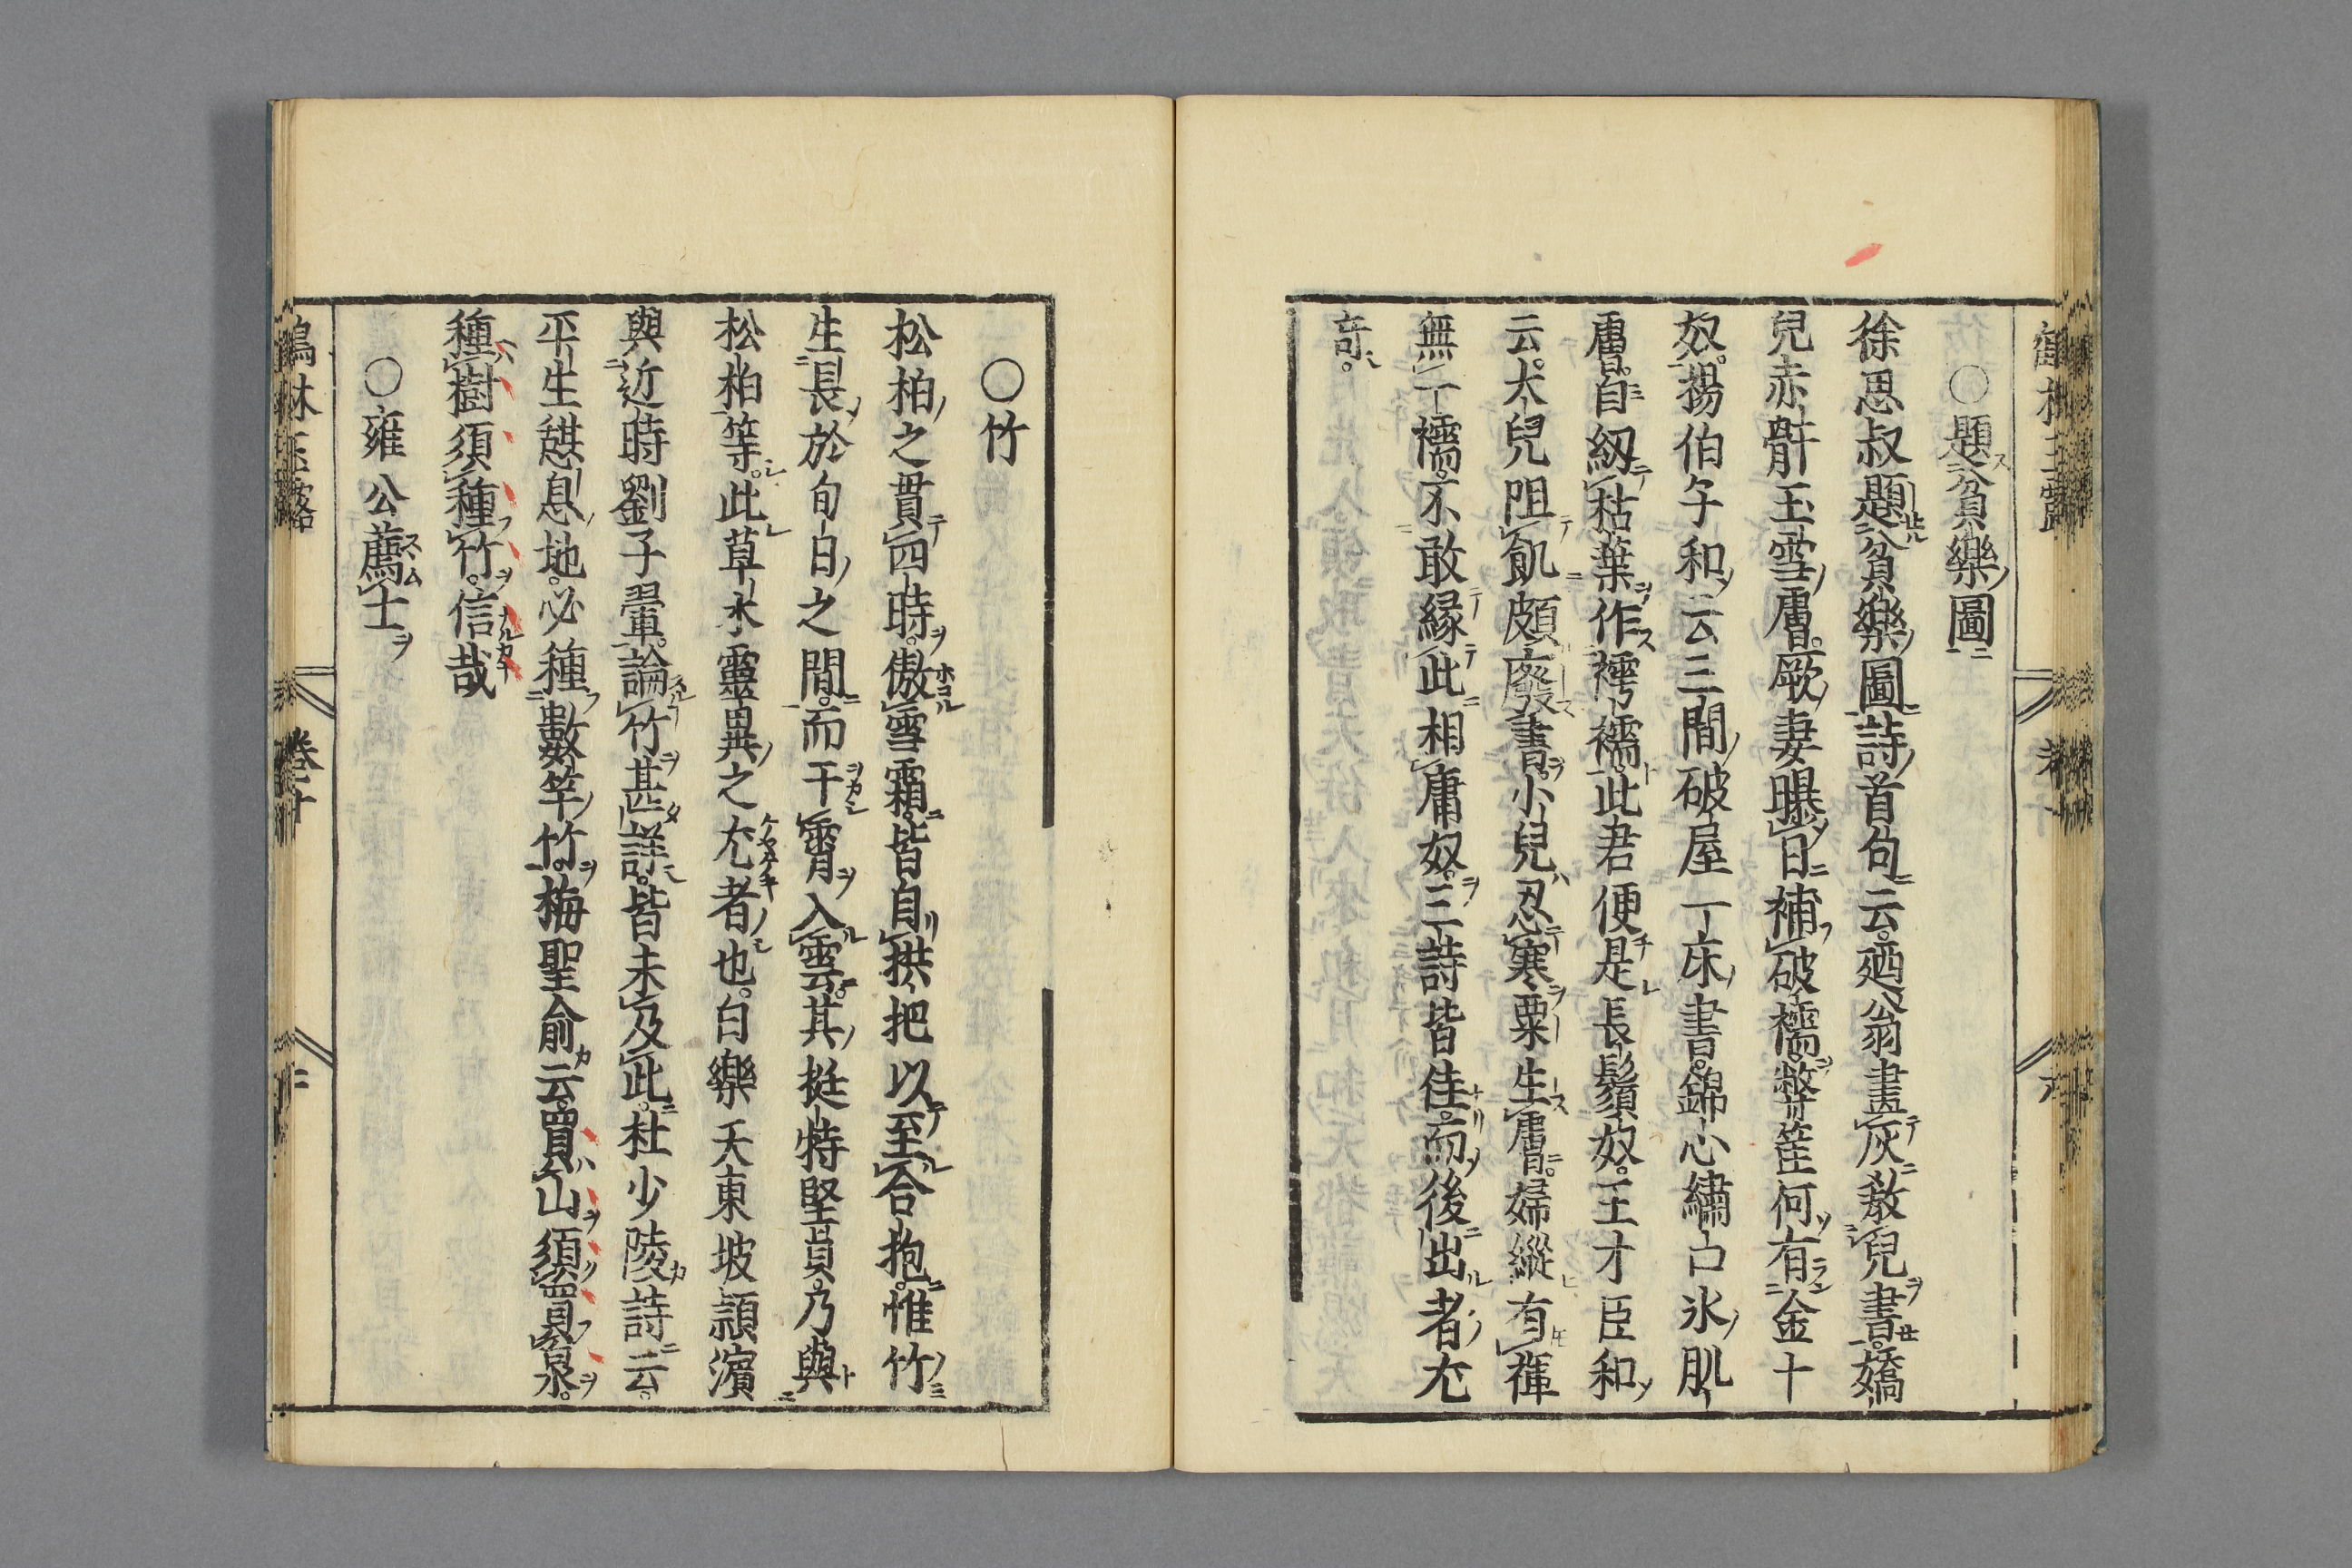 〇題貧樂圖
徐思叔題貧樂圖詩首句云。廼翁畫灰教兒書。嬌
兒赤骭玉雪膚。厥妻曝日補破襦。弊筐何有金十
奴。楊伯子和云三間破屋一丁床書。錦心繡口氷肌
膚。自紉枯葉作袴襦。此君便是長鬚奴。王才臣和
云。大兒阻飢頗廢書。小兒忍寒粟生膚。婦縱有褌
無一襦。不敢緣此相庸奴。三詩皆佳。而後出者尤
竒。
〇竹
松柏之貫四時。傲雪霜。皆自拱把以至合抱。惟竹
生長於旬日之間。而干霄入雲。其挺特堅貞。乃與
松柏等。此草木靈異之尤者也。白樂天東坡頴濱
與近時劉子翬。論竹甚詳。皆未及此。杜少陵詩云。
平生憩息地。必種數竿竹。梅聖俞云。買山須買泉。
種樹須種竹。信哉
〇雍公薦士
鶴林玉露 卷十